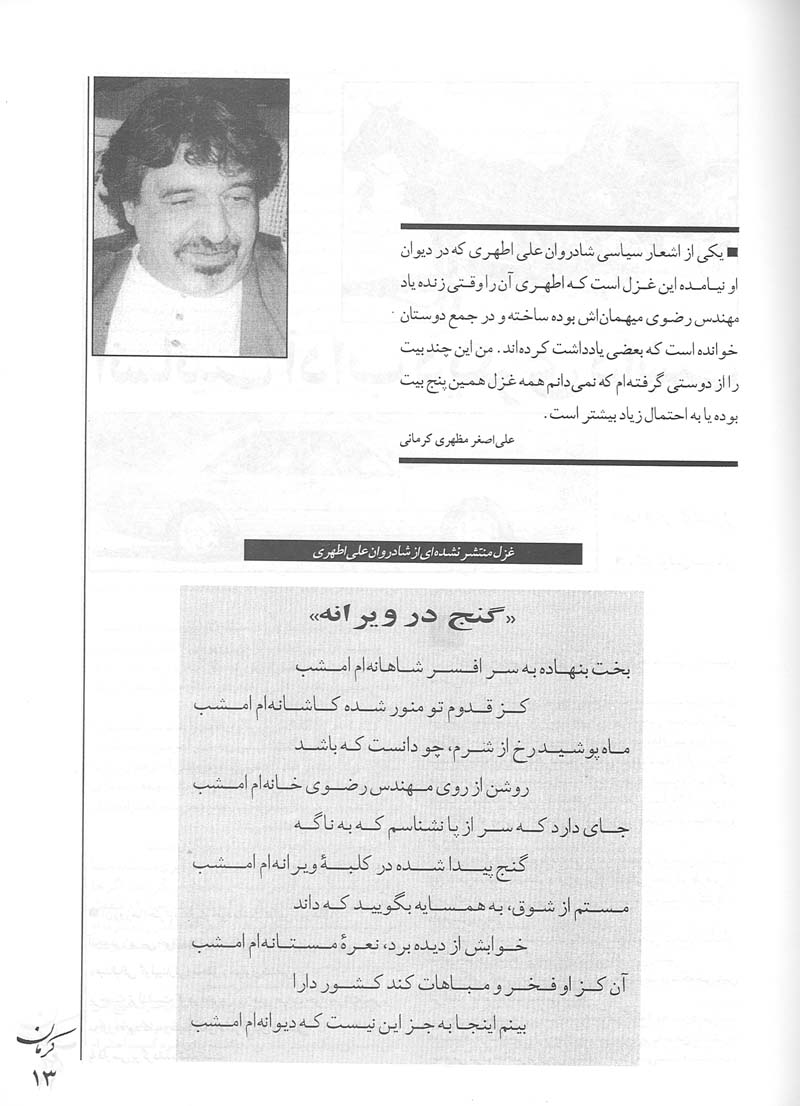 ■ یکی از اشعار سیاسی شادروان علی اطهری که در دیوان
او نیامده این غزل است که اطهری آن را وقتی زنده یاد
مهندس رضوی میهمان‌اش بوده ساخته و در جمع دوستان
خوانده است که بعضی یادداشت کرده‌اند. من این چند بیت
را از دوستی گرفته‌ام که نمی‌دانم همه غزل همین پنج بیت
بوده یا به احتمال زیاد بیشتر است.
علی‌اصغر مظهری کرمانی
غزل منتشر نشده‌ای از شادروان علی اطهری
«گنج در ویرانه»
بخت بنهاده به سر افسر شاهانه‌ام امشب
کز قدوم تو منور شده کاشانه‌ام امشب
ماه پوشید رخ از شرم، چو دانست که باشد
روشن از روی مهندس رضوی خانه‌ام امشب
جای دارد که سر از پا نشناسم که به ناگه
گنج پیدا شده در کلبهٔ ویرانه‌ام امشب
مستم از شوق، به همسایه بگویید که داند
خوابش از دیده برد، نعرهٔ مستانه‌ام امشب
آن کز او فخر و مباهات کند کشور دارا
بینم اینجا به جز این نیست که دیوانه‌ام امشب
کرمان
۱۳